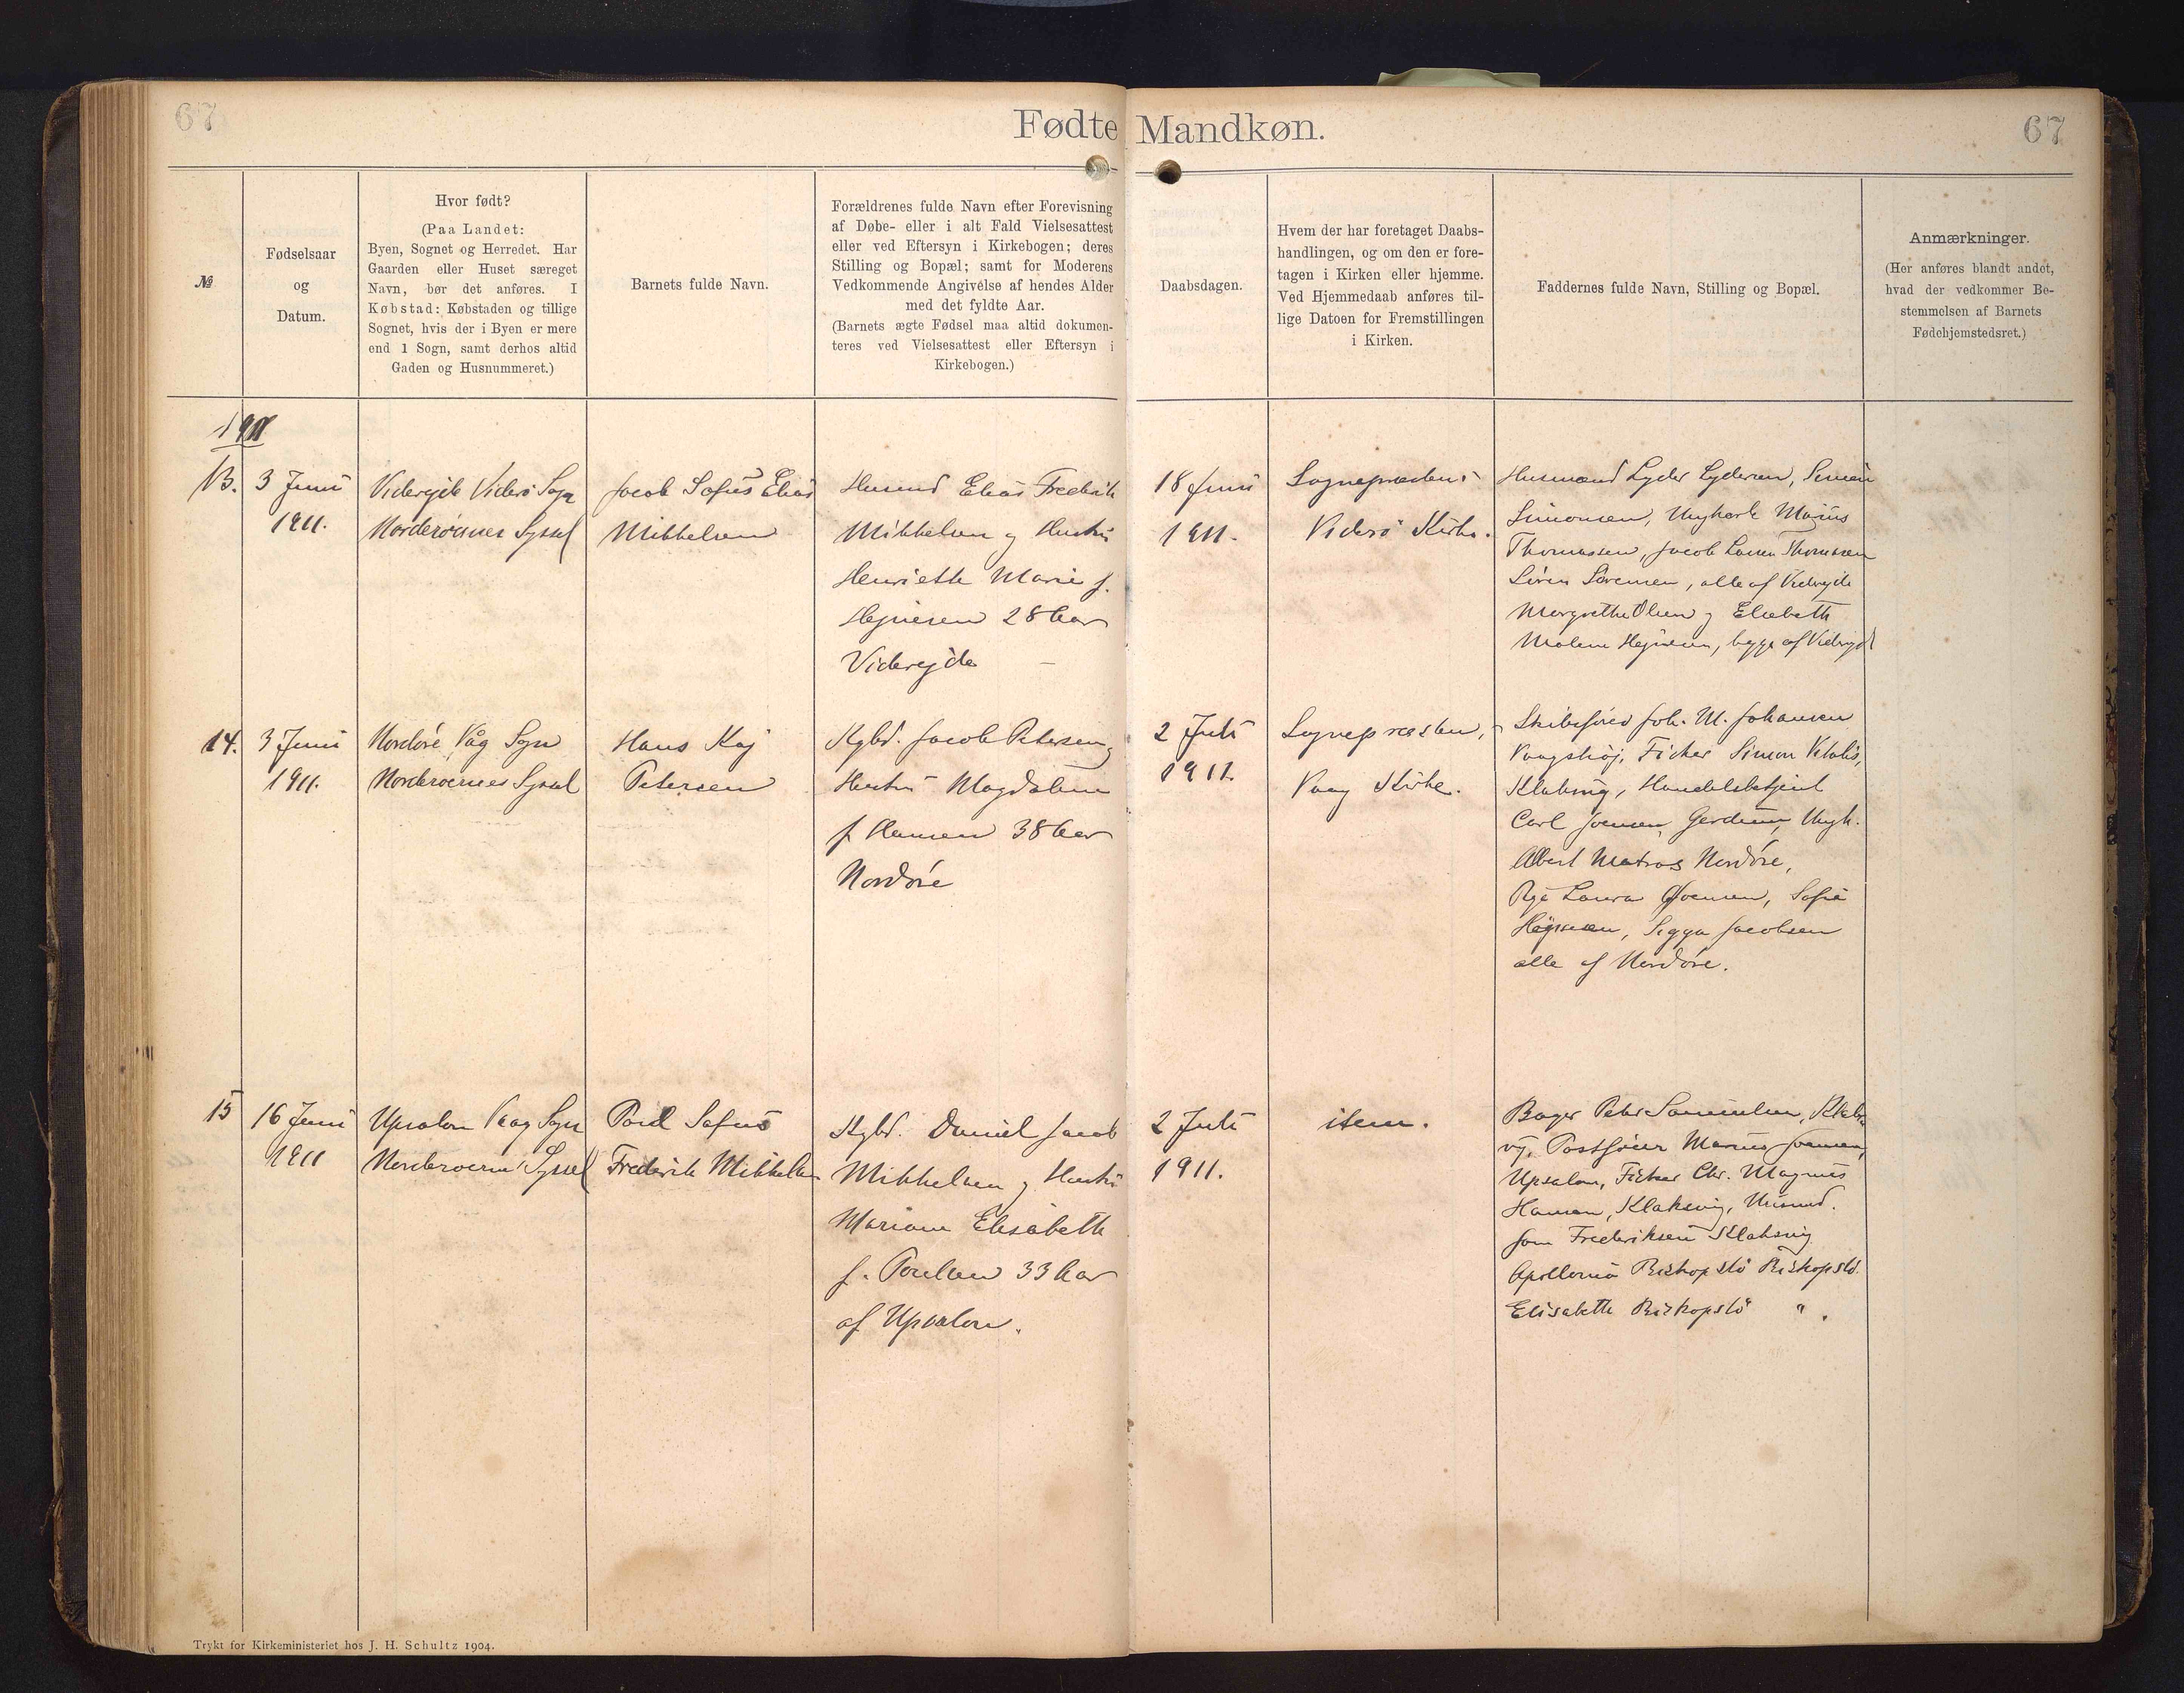 67
Fødte Mandkøn.
67
№
Fødselsaar
og
Datum.
Hvor født?
(Paa Landet:
Byen, Sognet og Herredet. Har
Gaarden eller Huset særeget
Navn, bør det anføres. I
Købstad: Købstaden og tillige
Sognet, hvis der i Byen er mere
end 1 Sogn, samt derhos altid
Gaden og Husnummeret.)
Barnets fulde Navn.
Forældrenes fulde Navn efter Forevisning
af Døbe- eller i alt Fald Vielsesattest
eller ved Eftersyn i Kirkebogen; deres
Stilling og Bopæl; samt for Moderens
Vedkommende Angivelse af hendes Alder
med det fyldte Aar.
(Barnets ægte Fødsel maa altid dokumen-
teres ved Vielsesattest eller Eftersyn i
Kirkebogen.)
Daabsdagen.
Hvem der har foretaget Daabs-
handlingen, og om den er fore-
tagen i Kirken eller hjemme.
Ved Hjemmedaab anføres til-
lige Datoen for Fremstillingen
i Kirken.
Faddernes fulde Navn, Stilling og Bopæl.
Anmærkninger.
(Her anføres blandt andet,
hvad der vedkommer Be-
stemmelsen af Barnets
Fødehjemstedsret.)
1911
13.
3 Juni
1911.
Viderejde Viderø Sogn
Norderøernes Syssel
Jacob Sofus Elias
Mikkelsen
Husmd Elias Frederik
Mikkelsen og Hustru
Henriette Marie f.
Hejnesen 28 Aar
Viderejde
18 Juni
1911.
Sognepræsten i
Viderø Kirke.
Husmand Lyder Lydersen, Simon
Simonsen, Ungkarle Marius
Thomassen, Jacob Thomassen
Søren Sørensen, alle af Viderejde
Margrethe Olsen og Elisabeth
Malene Hejnesen, begge af Viderejde
14.
3 Juni
1911.
Nordøre Våg Sogn
Norderøernes Syssel
Hans Kaj
Petersen
Kgbd. Jacob Petersen og
Hustru Magdalene
f. Hansen 38 Aar
Nordøre
2 Juli
1911.
Sognepræsten, i
Vaag Kirke.
Skibsfører Joh. M. Johansen
Vaagshøj, Fisker Simon Vitalis,
Klaksvig, Handelsbetjent
Carl Joensen, Gerdum, Ungk.
Albert Matras Nordøre,
Pige Laura Joensen, Sofie
Højnesen, Sigga Jacobsen
alle af Nordøre.
15
16 Juni
1911
Upsalon Vaag Sogn
Norderøernes Syssel
Poul Sofus
Frederik Mikkelsen
Kgbd. Daniel Jacob
Mikkelsen og Hustru
Mariane Elisabeth
f. Poulsen 33 Aar
af Upsalon.
2 Juli
1911.
item.
Bager Peter Samuelsen, Klaks-
vig, Postfører Marius Joensen,
Upsalon, Fisker Chr. Magnus
Hansen, Klaksvig, Husmd.
Joen Frederiksen Klaksvig
Apollonia Biskopstø Biskopstø.
Elisabeth Biskopstø " .
Trykt for Kirkeministeriet hos J. H. Schultz 1904.